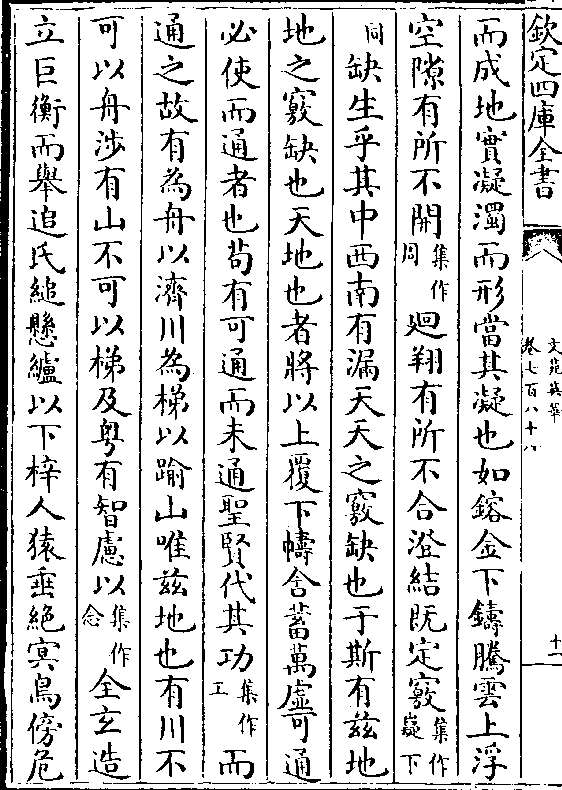 欽定四庫全書
文苑英華
卷七百八十八
十一
而成地實凝濁而形當其凝也如鎔金下鑄騰雲上浮
空隙有所不開集作周廻翔有所不合澄結既定竅集作嶷下
同缺生乎其中西南有漏天天之竅缺也于斯有兹地
地之竅缺也天地也者將以上覆下幬含蓄萬虛可通
必使而通者也茍有可通而未通聖賢代其功集作工而
通之故有為舟以濟川為梯以踰山唯兹地也有川不
可以舟涉有山不可以梯及粤有智慮以集作念全立造
立巨衡而舉追氏縋懸纑以下梓人猿垂絶㝠鳥傍危